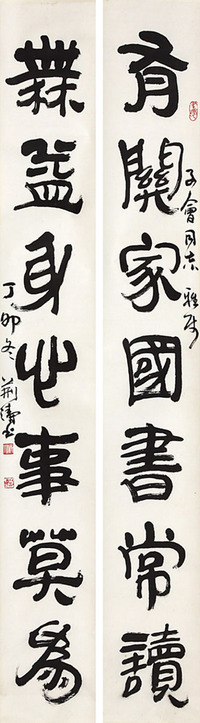 有關家國書常讀
子會同志雅屬
無益身心事莫為
丁卯冬 荆濤書